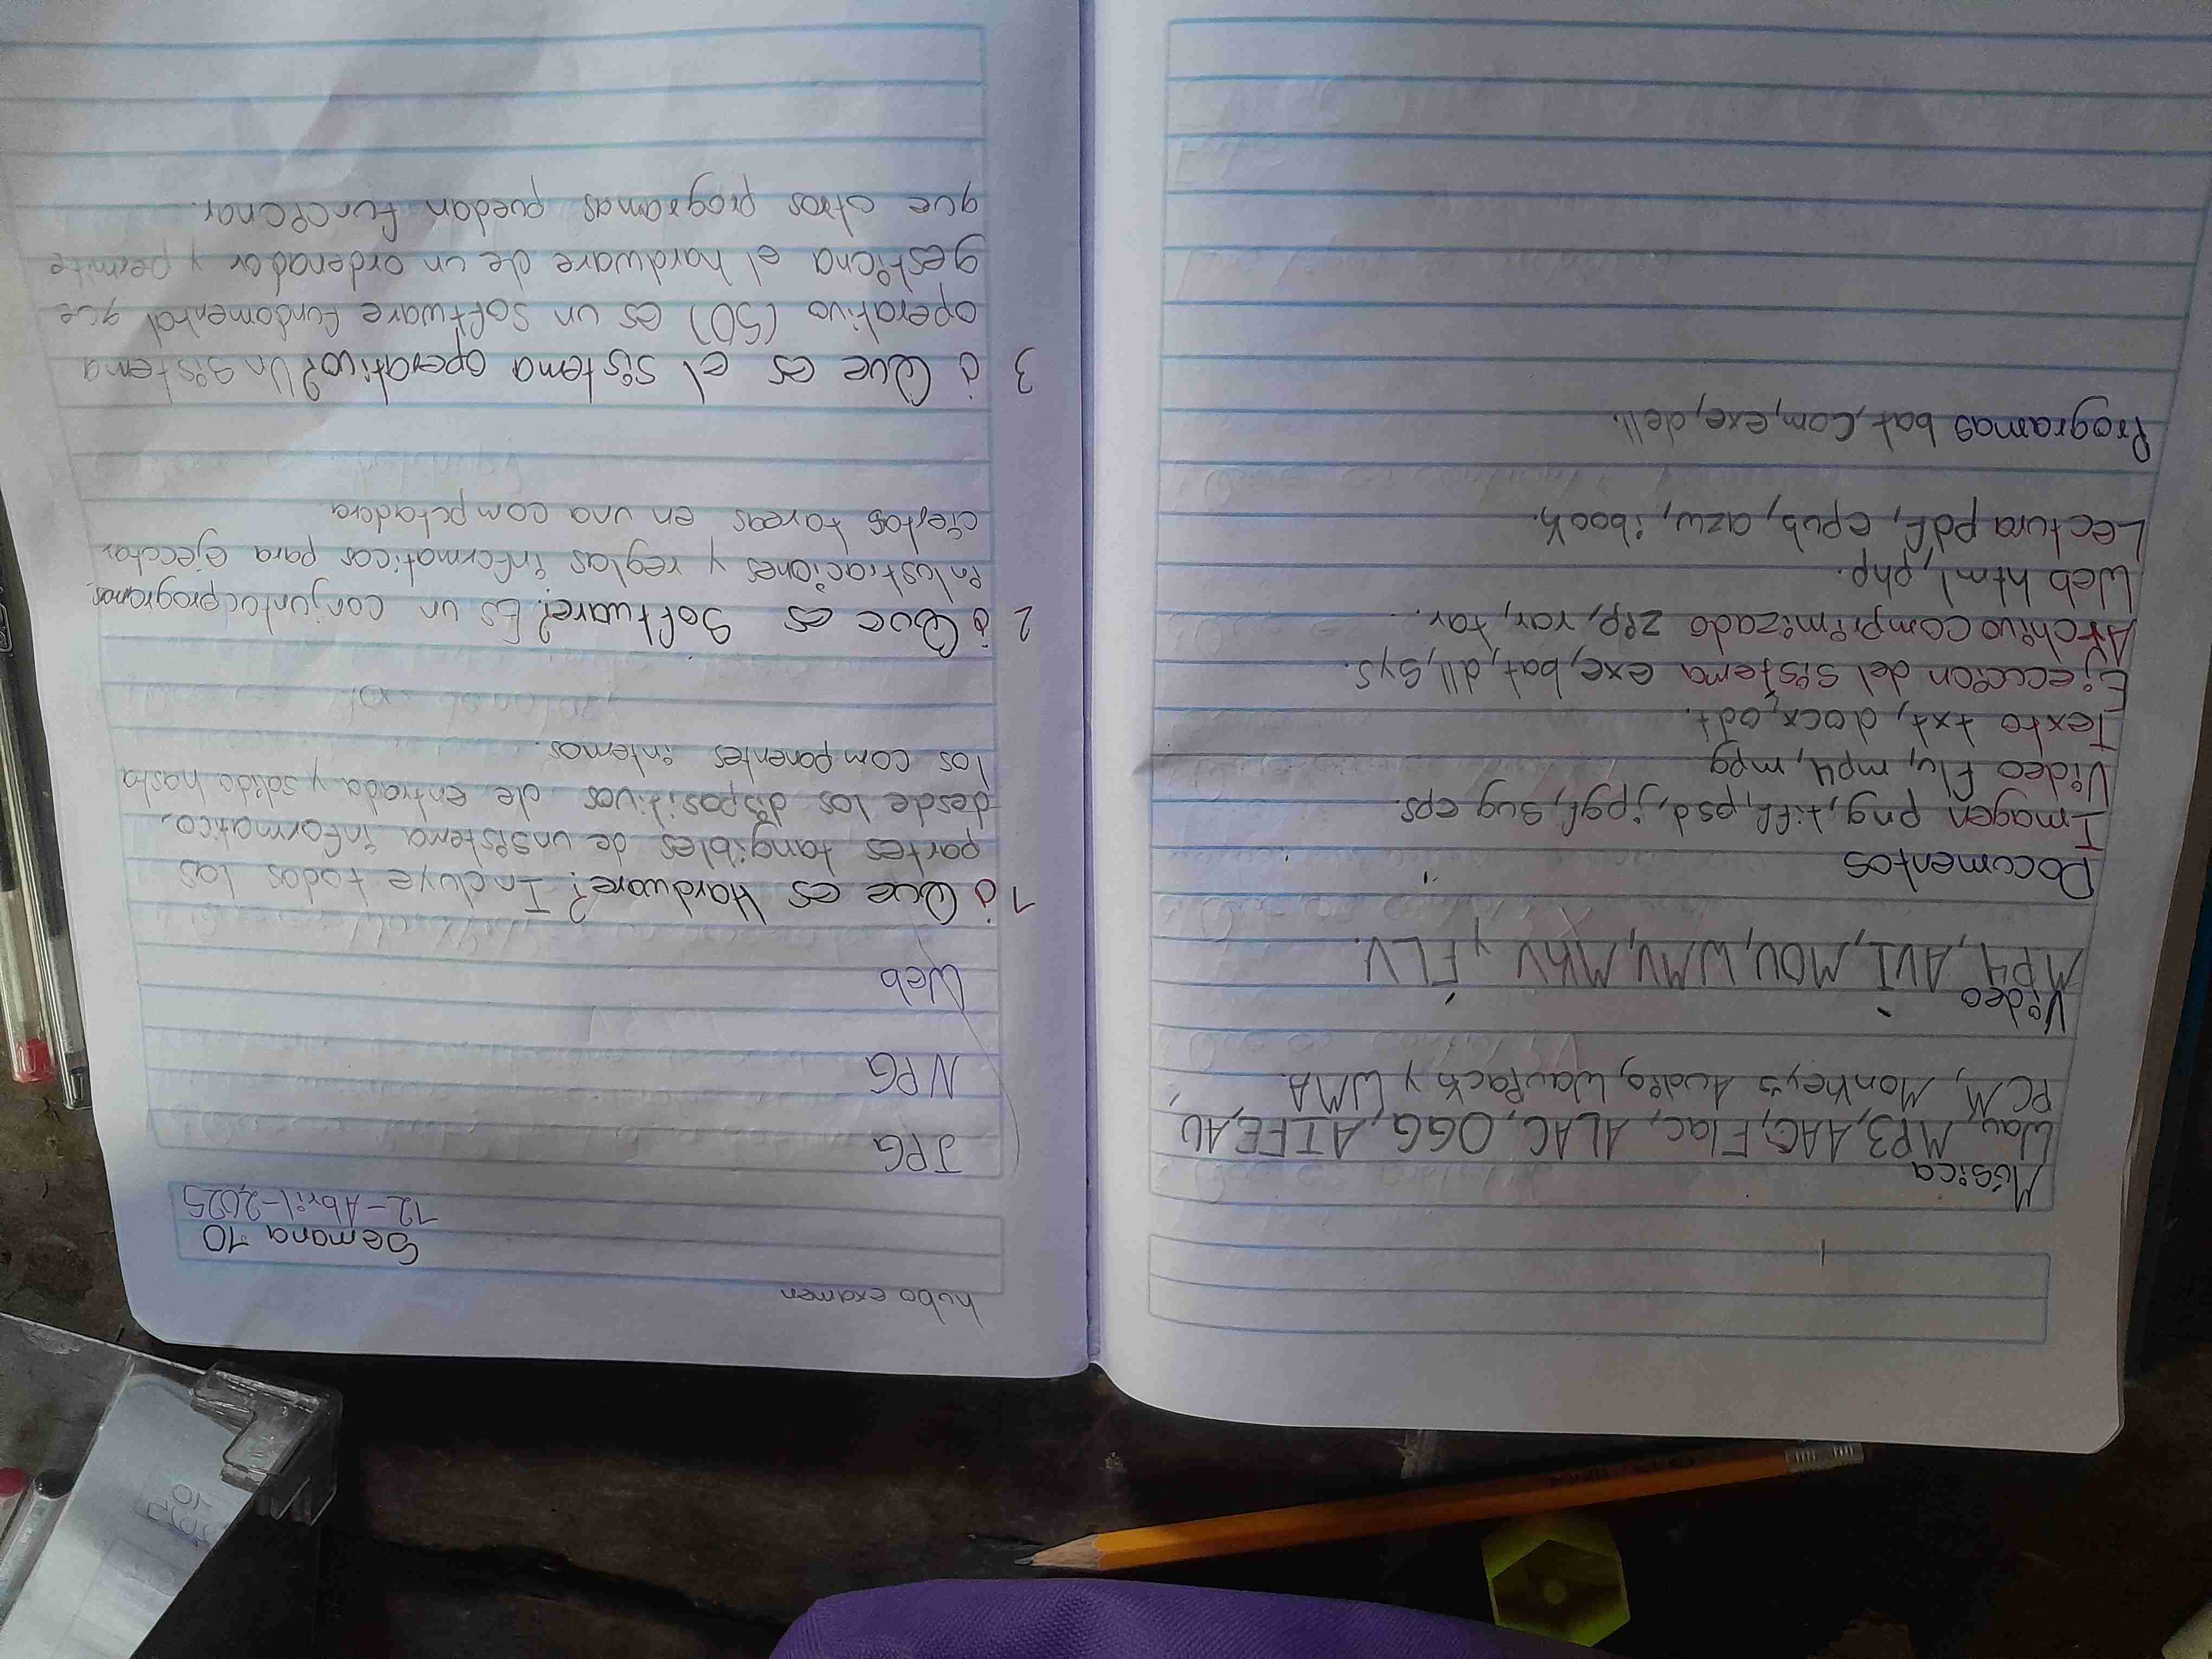 Música
Wav, MP3, AAC, Flac, ALAC, OGG, AIFF, AU,
PCM, Monkey's Audio, WavPack y WMA.
Video
MP4, AVI, MOV, WMV, MKV y FLV.
Documentos
Imagen png, tiff, psd, jpgf, svg eps.
Video flv, mp4, mpg
Texto txt, docx, odt.
Ejeccción del sistema exe, bat, dll, sys.
Archivo comprimizado zip, rar, tar.
Web html, php.
Lectura pdf, epub, azw, ibook.
Programas bat, com, exe, dell.
hubo examen
Semana 10
12-Abril-2025
JPG
NPG
Web
1 ¿Que es Hardware? Incluye todas las
partes tangibles de un sistema informatico,
desde los dispositivos de entrada y salida hasta
los componentes internos.
2 ¿Que es Software? Es un conjuntodprogramas,
inlustraciones y reglas informaticas para ejecutar
ciertas tareas en una computadora.
3 ¿Que es el sistema operativo? Un sistema
operativo (SO) es un software fundamental que
gestiona el hardware de un ordenador y permite
que otros programas puedan funcionar.